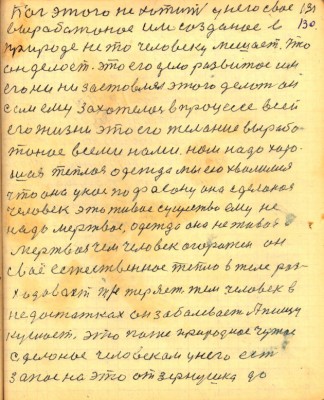 Бог этого не хотит у него своё 131
выработоное им созданое в 130.
природе не то человеку мешает. Што
он делоет. это его дело развитое им
его ни ни заставлял этого делот он
сам ему захотелось в процессе всей
его жизни это его желание вырабо-
таное всеми нами. нам надо харо-
шая теплая одежда мы ею хвалимся
что она у нас по фасону она сделоная
человек это живое существо ему не
надо мертвое, одежда она не живая
мертвая чем человек огорожен он
своё естественное тепло в теле рас-
ходовает теряет тем человек в
недостатках он заболевает. А пищу
кушает. это тоже природное чужое
сделоное человеком у него ест
запас на это от зернушка до